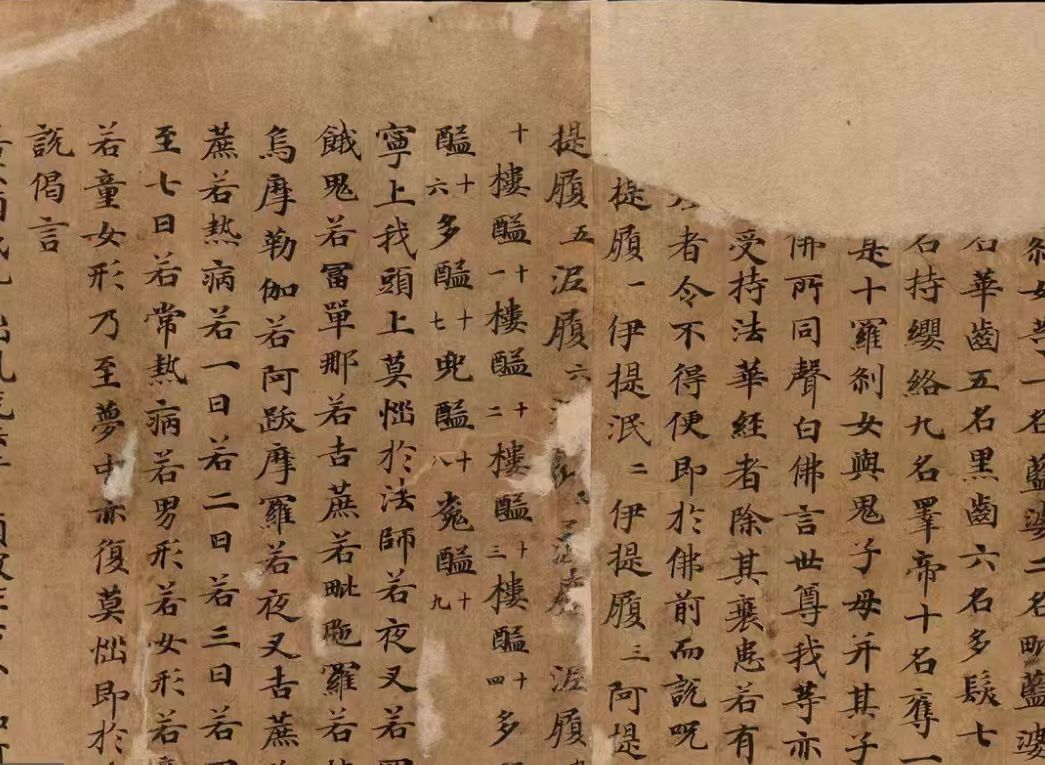 刹女等一名藍婆二名毗藍婆
名華齒五名黑齒六名多髮七
名持纓絡九名睪帝十名奪一
是十羅刹女與鬼子母并其子
佛所同聲白佛言世尊我等亦
受持法華經者除其襄患若有
者令不得便即於佛前而說呪
提履一伊提泯二伊提履三阿提
提履五泥履六泥履
十樓醯十一樓醯十二樓醯十三樓醯十四多
醯十六多醯十七兜醯十八㝹醯十九
寧上我頭上莫惱於法師若夜叉若
餓鬼若富單那若吉蔗若毗陁羅若
烏摩勒伽若阿跋摩羅若夜叉吉蔗
蔗若熱病若一日若二日若三日若
至七日若常熱病若男形若女形若
若童女形乃至夢中亦復莫惱即於
說偈言